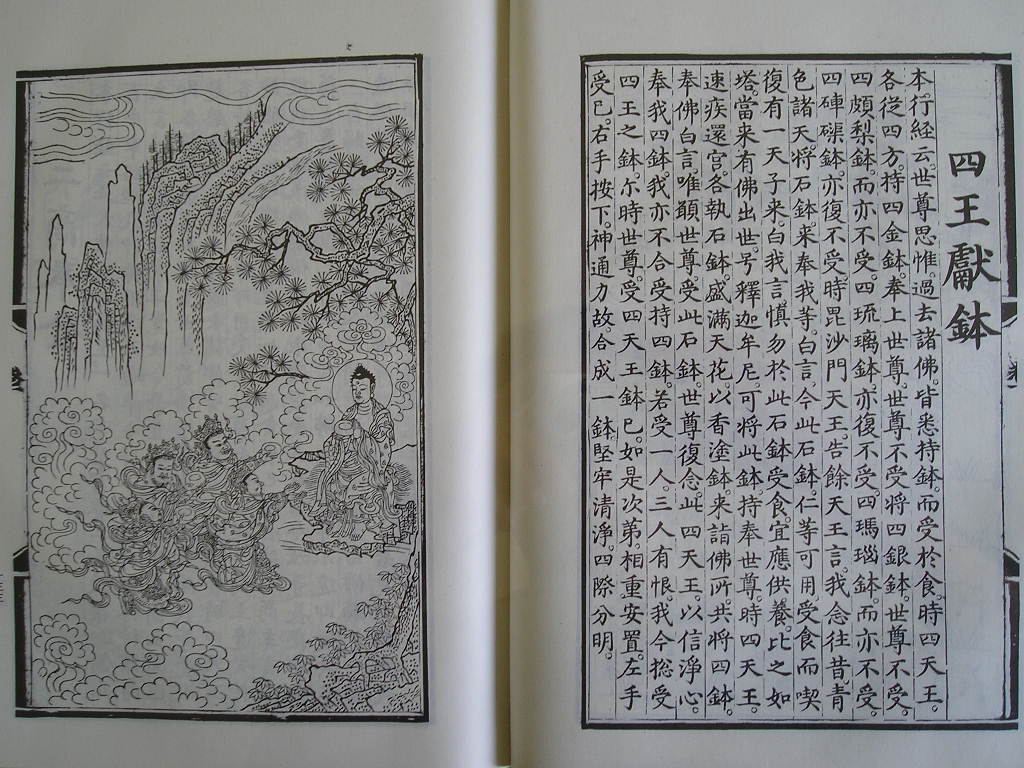 四王獻鉢
本行經云。世尊思惟。過去諸佛。皆悉持鉢。而受於食。時四天王。
各從四方。持四金鉢。奉上世尊。世尊不受。將四銀鉢。世尊不受。
四頗梨鉢。而亦不受。四琉璃鉢。亦復不受。四瑪瑙鉢。而亦不受。
四硨磲鉢。亦復不受。時毘沙門天王。告餘天王言。我念往昔。青
色諸天。將石鉢。來奉我等。白言。今此石鉢。仁等可用。受食而喫
復有一天子。來白我言。慎勿於此石鉢受食。宜應供養。比之如
塔。當来有佛出世。号釋迦牟尼。可將此鉢。持奉世尊。時四天王。
速疾還宮。各執石鉢。盛滿天花。以香塗鉢。来詣佛所。共將四鉢。
奉佛白言。唯願世尊。受此石鉢。世尊復念。此四天王。以信淨心。
奉我四鉢。我亦不合受持四鉢。若受一人。三人有恨。我今捴受
四王之鉢。尒時世尊。受四天王鉢已。如是次第。相重安置左手
受已。右手按下。神通力故。合成一鉢。堅牢清淨。四際分明。